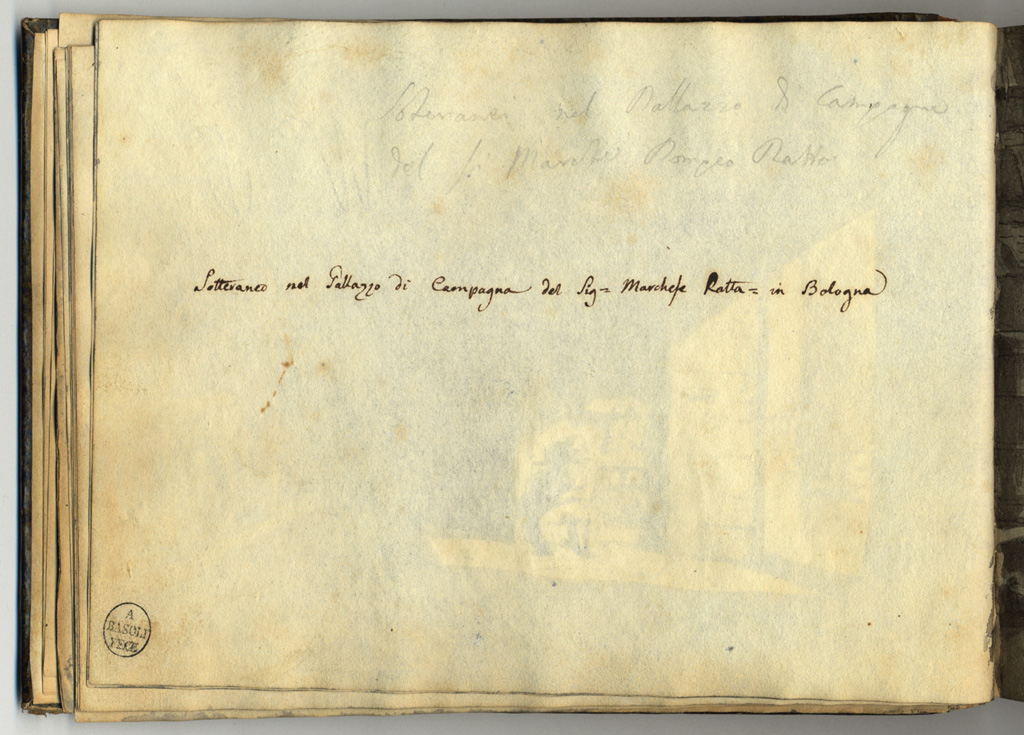 Soteranei nel Pallazzo di Campagna
del Marche Pompeo Ratta
Sotteraneo nel Pallazzo di Campagna del Sig= Marchese Ratta= in Bologna
A
BASOLI
FECE